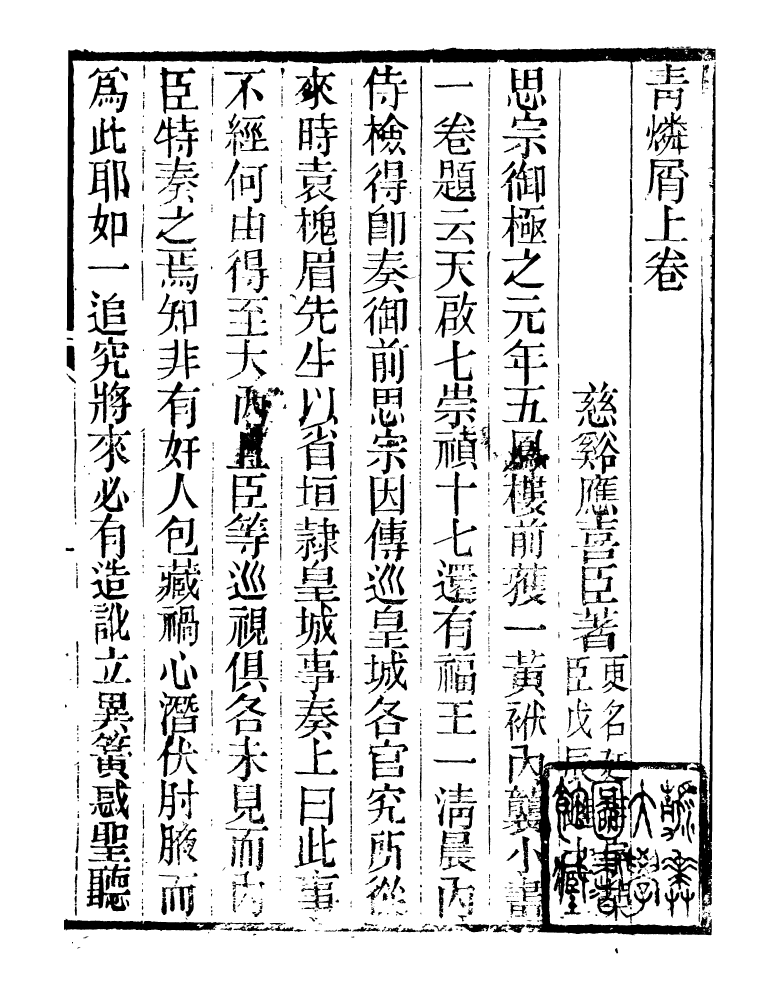 青燐屑上卷
慈谿應喜臣著更名
臣戊辰
思宗御極之元年五鳳樓前獲一黃袱內襲小書
一卷題云天啟七崇禎十七還有福王一淸晨內
侍檢得卽奏御前思宗因傳巡皇城各官究所從
來時袁槐眉先生以省垣隷皇城事奏上曰此事
不經何由得至大內且臣等巡視俱各未見而內
臣特奏之焉知非有奸人包藏禍心潛伏肘腋而
爲此耶如一追究將來必有造訛立異簧惑聖聽
燕京大學圖書館藏